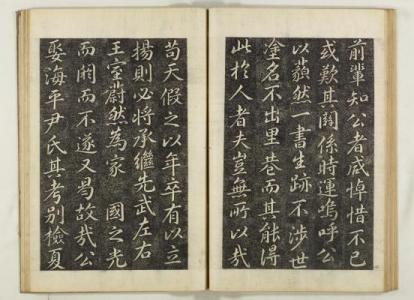 前輩知公者咸悼惜不已
或歎其關係時運嗚呼公
以藐然一書生跡不涉世
塗名不出里巷而其能得
此於人者夫豈無所以哉
苟天假之以年卒有以立
揚則必將承繼先武左右
王室蔚然為家國之光
而閼而不遂又曷故哉公
娶海平尹氏其考別檢夏